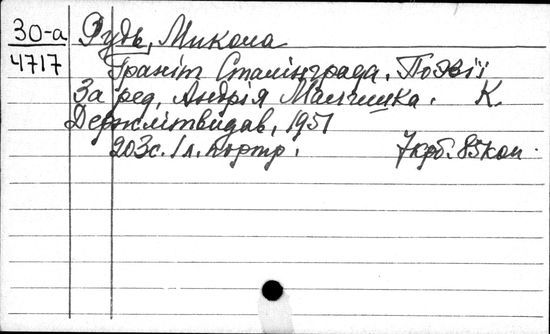 30-а Рудь, Микола
4717 Граніт Сталінграда. Поезії
За ред. Андрія Малишка. К.
Держлітвидав, 1951
203с. 1 л. портр. 7крб. 85коп.